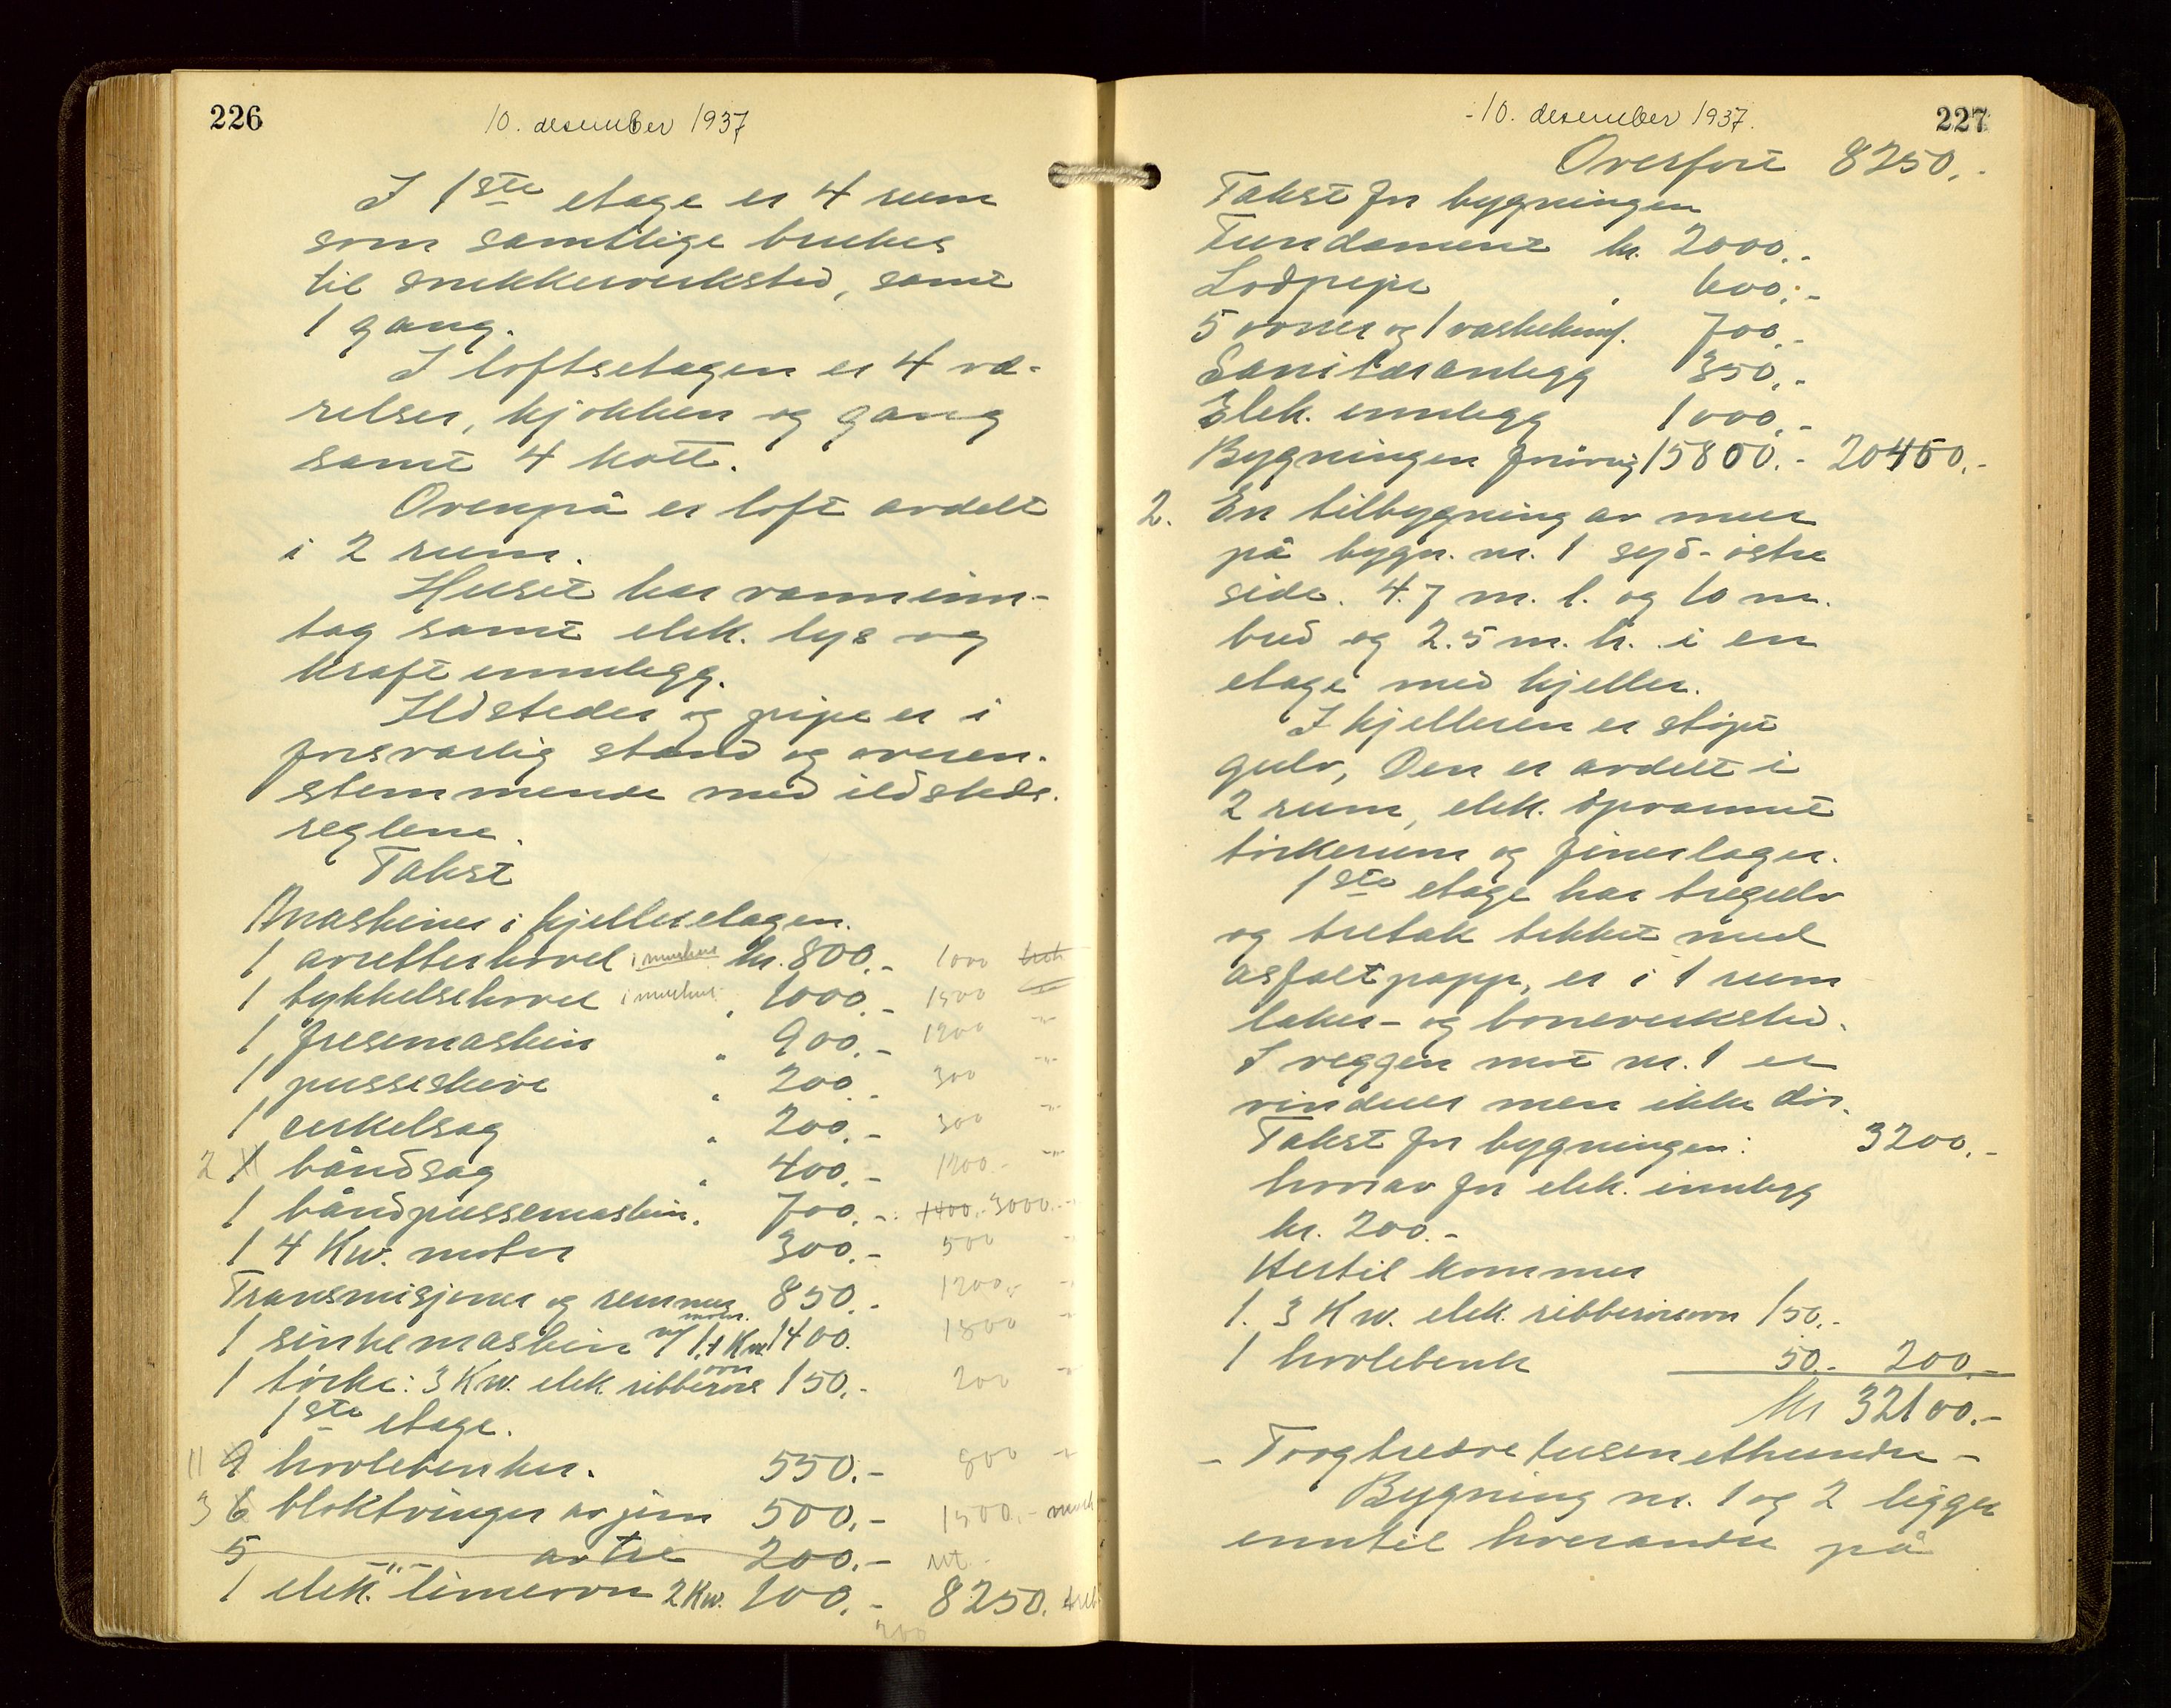 226
10. desember 1937
I 1ste etage er 4 rum
som samtlige brukes
til snekkerverksted, samt
1 gang.
I loftsetagen er 4 væ-
relser, kjøkken og gang
samt 4 kott.
Ovenpå er loft avdelt
i 2 rum.
Huset har vanninn-
tag samt elek. lys og
kraft innlegg.
Ildsteder og pipe er i
forsvarlig stand og overen-
stemmende med ildsteds-
reglene.
Takst
Maskiner i kjelleretagen.
1 avretterhøvel kr. 800.- 1000
1 tykkelsehøvel " 1000.- 1500
1 fresemaskin " 900.- 1200 -"-
1 pusseskive " 200.- 300 -"-
1 cirkelsag " 200.- 300 -"-
2 1 båndsag " 400.- 1200.- -"-
1 båndpussemaskin. 700.- 1400.- 3000.-
1 4 Kw. motor 300.- 500
Transmisjoner og remmer 850.- 1200.-
1 sinkemaskin m/ 1,1 Kw. motor. 1400. 1800
1 tørke: 3 Kw. elek ribberørs ovn 150.- 200
1ste etage.
11 9 høvlebenker. 550.- 800
3 6 bloktvinger av jern 500.- 1500.-
5 -"- av tre 200.- ut.
1 elek. limovn 2 Kw. 100.- 8250.
200
227
- 10. desember 1937.
Overført 8250.-
Takst for bygningen
Fundament kr. 2000.-
Lodpipe " 600.-
5 ovner og 1 vaskekum. 700.-
Sanitæranlegg 350.-
Elek. innlegg 1000.-
Bygningen forøvrig 15800.- 20450.-
2. En tilbygning av mur
på bygn. nr. 1 syd-østre
side. 4.7 m. l. og 10 m.
bred og 2.5 m. h. i en
etage med kjeller.
I kjelleren er støpt
gulv, Den er avdelt i
2 rum, elek. opvarmet
tørkerum og finerlager.
1ste etage har tregulv
og tretak tekket med
asfaltpapp, er i 1 rum
laker- og boneverksted.
I veggen mot nr. 1 er
vinduer men ikke dør.
Takst for bygningen: 3200.-
hvorav for elek. innlegg
kr. 200.-
Hertil kommer
1. 3 Kw. elek. ribberørsovn 150.-
1 høvlebenk 50.- 200.-
Kr 32100.-
- Toogtredve tusen ethundre -
Bygning nr. 1 og 2 ligger
inntil hverandre på